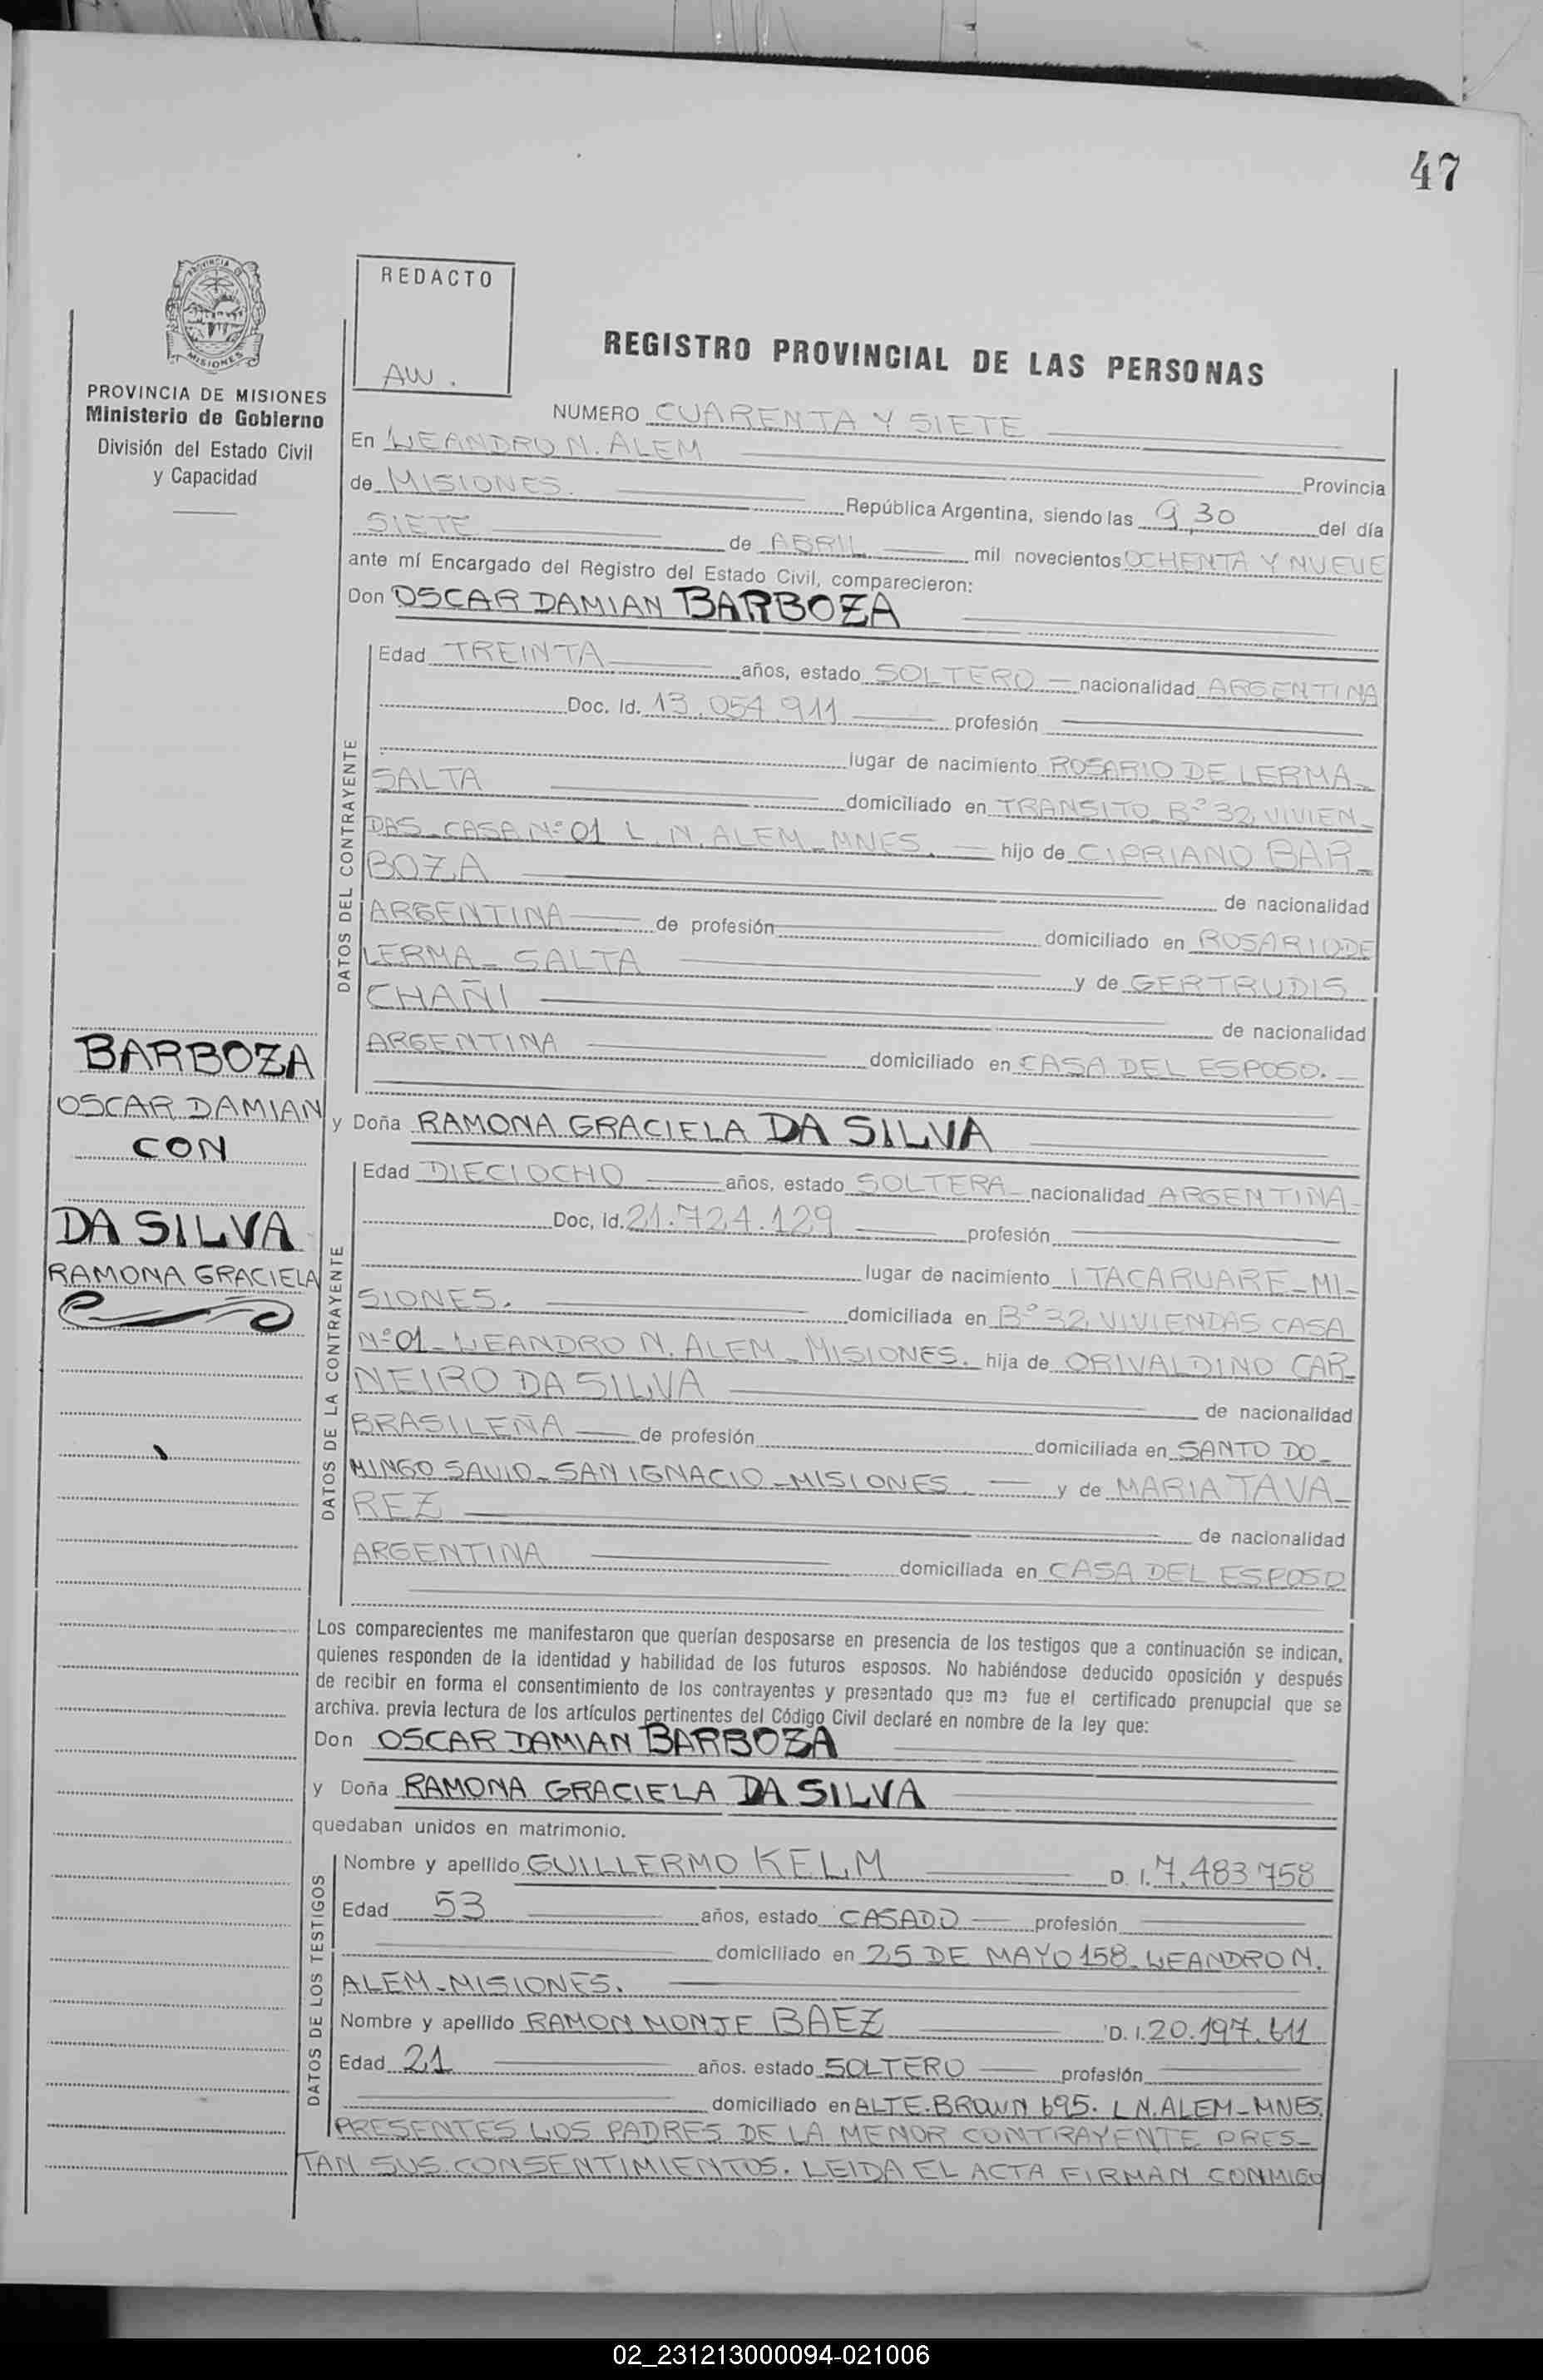 47
PROVINCIA DE
MISIONES
PROVINCIA DE MISIONES
Ministerio de Gobierno
División del Estado Civil
y Capacidad
REDACTO
AW.
REGISTRO PROVINCIAL DE LAS PERSONAS
NUMERO CUARENTA Y SIETE
En LEANDRO N. ALEM Provincia
de MISIONES. República Argentina, siendo las 9,30 del día
SIETE de ABRIL mil novecientos OCHENTA Y NUEVE
ante mí Encargado del Registro del Estado Civil, comparecieron:
Don OSCAR DAMIAN BARBOZA
DATOS DEL CONTRAYENTE
Edad TREINTA años, estado SOLTERO nacionalidad ARGENTINA
Doc. Id. 13.054.911 profesión
lugar de nacimiento ROSARIO DE LERMA-
SALTA domiciliado en TRANSITO-Bº 32 VIVIEN-
DAS-CASA Nº 01 L.N. ALEM-MNES. hijo de CIPRIANO BAR-
BOZA de nacionalidad
ARGENTINA de profesión domiciliado en ROSARIO DE
LERMA-SALTA y de GERTRUDIS
CHAÑI de nacionalidad
ARGENTINA domiciliado en CASA DEL ESPOSO.
BARBOZA
OSCAR DAMIAN
CON
DA SILVA
RAMONA GRACIELA
y Doña RAMONA GRACIELA DA SILVA
DATOS DE LA CONTRAYENTE
Edad DIECIOCHO años, estado SOLTERA nacionalidad ARGENTINA
Doc. Id. 21.724.129 profesión
lugar de nacimiento ITACARUARE-MI-
SIONES. domiciliada en Bº 32 VIVIENDAS CASA
Nº 01-LEANDRO N. ALEM-MISIONES. hija de ORIVALDINO CAR-
NEIRO DA SILVA de nacionalidad
BRASILEÑA de profesión domiciliada en SANTO DO-
MINGO SAVIO-SAN IGNACIO-MISIONES. y de MARIA TAVA-
REZ de nacionalidad
ARGENTINA domiciliada en CASA DEL ESPOSO
Los comparecientes me manifestaron que querían desposarse en presencia de los testigos que a continuación se indican,
quienes responden de la identidad y habilidad de los futuros esposos. No habiéndose deducido oposición y después
de recibir en forma el consentimiento de los contrayentes y presentado que me fue el certificado prenupcial que se
archiva. previa lectura de los artículos pertinentes del Código Civil declaré en nombre de la ley que:
Don OSCAR DAMIAN BARBOZA
y Doña RAMONA GRACIELA DA SILVA
quedaban unidos en matrimonio.
DATOS DE LOS TESTIGOS
Nombre y apellido GUILLERMO KELM D. I. 7.483.758
Edad 53 años, estado CASADO profesión
domiciliado en 25 DE MAYO 158-LEANDRO N.
ALEM-MISIONES.
Nombre y apellido RAMON MONJE BAEZ D. I. 20.197.611
Edad 21 años. estado SOLTERO profesión
domiciliado en ALTE. BROWN 695. L N. ALEM-MNES.
PRESENTES LOS PADRES DE LA MENOR CONTRAYENTE PRES-
TAN SUS CONSENTIMIENTOS. LEIDA EL ACTA FIRMAN CONMIGO
02_231213000094-021006